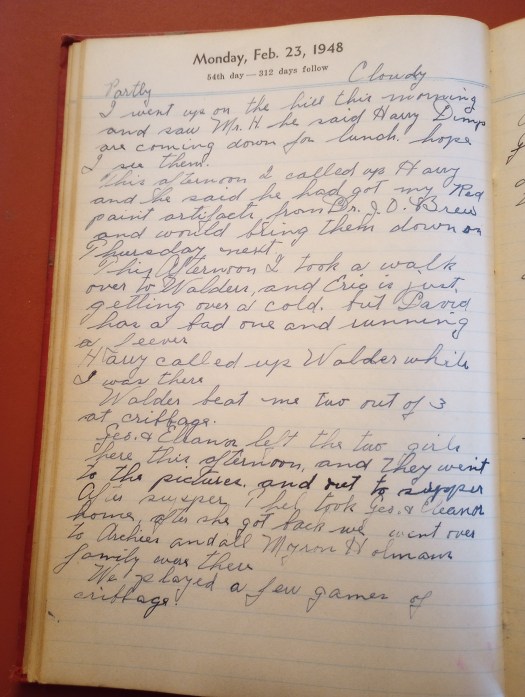 Monday, Feb. 23, 1948
54th day — 312 days follow
Partly Cloudy
I went up on the hill this morning
and saw Mr. H. he said Harry Dimps
are coming down for lunch. hope
I see them.
This afternoon I called up Harry
and he said he had got my Red
paint artifacts from Dr. J. O. Brew
and would bring them down on
Thursday next
This Afternoon I took a walk
over to Walders, and Eric is just
getting over a cold. but David
has a bad one and running
a feever
Harry called up Walder while
I was there
Walder beat me two out of 3
at cribbage.
Geo. & Eleanor left the two girls
here this afternoon, and they went
to the pictures. and out to supper
After supper Thel took Geo. & Eleanor
home, after she got back we went over
to Archies and all Myron Holmans
family were there
We played a few games of
cribbage.